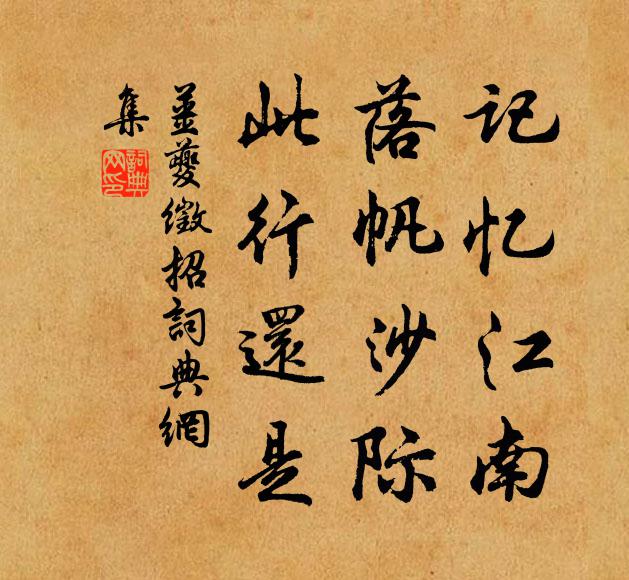 记忆江南
落帆沙际
此行還是
姜夔徵招詞典網
集
詞典
网印